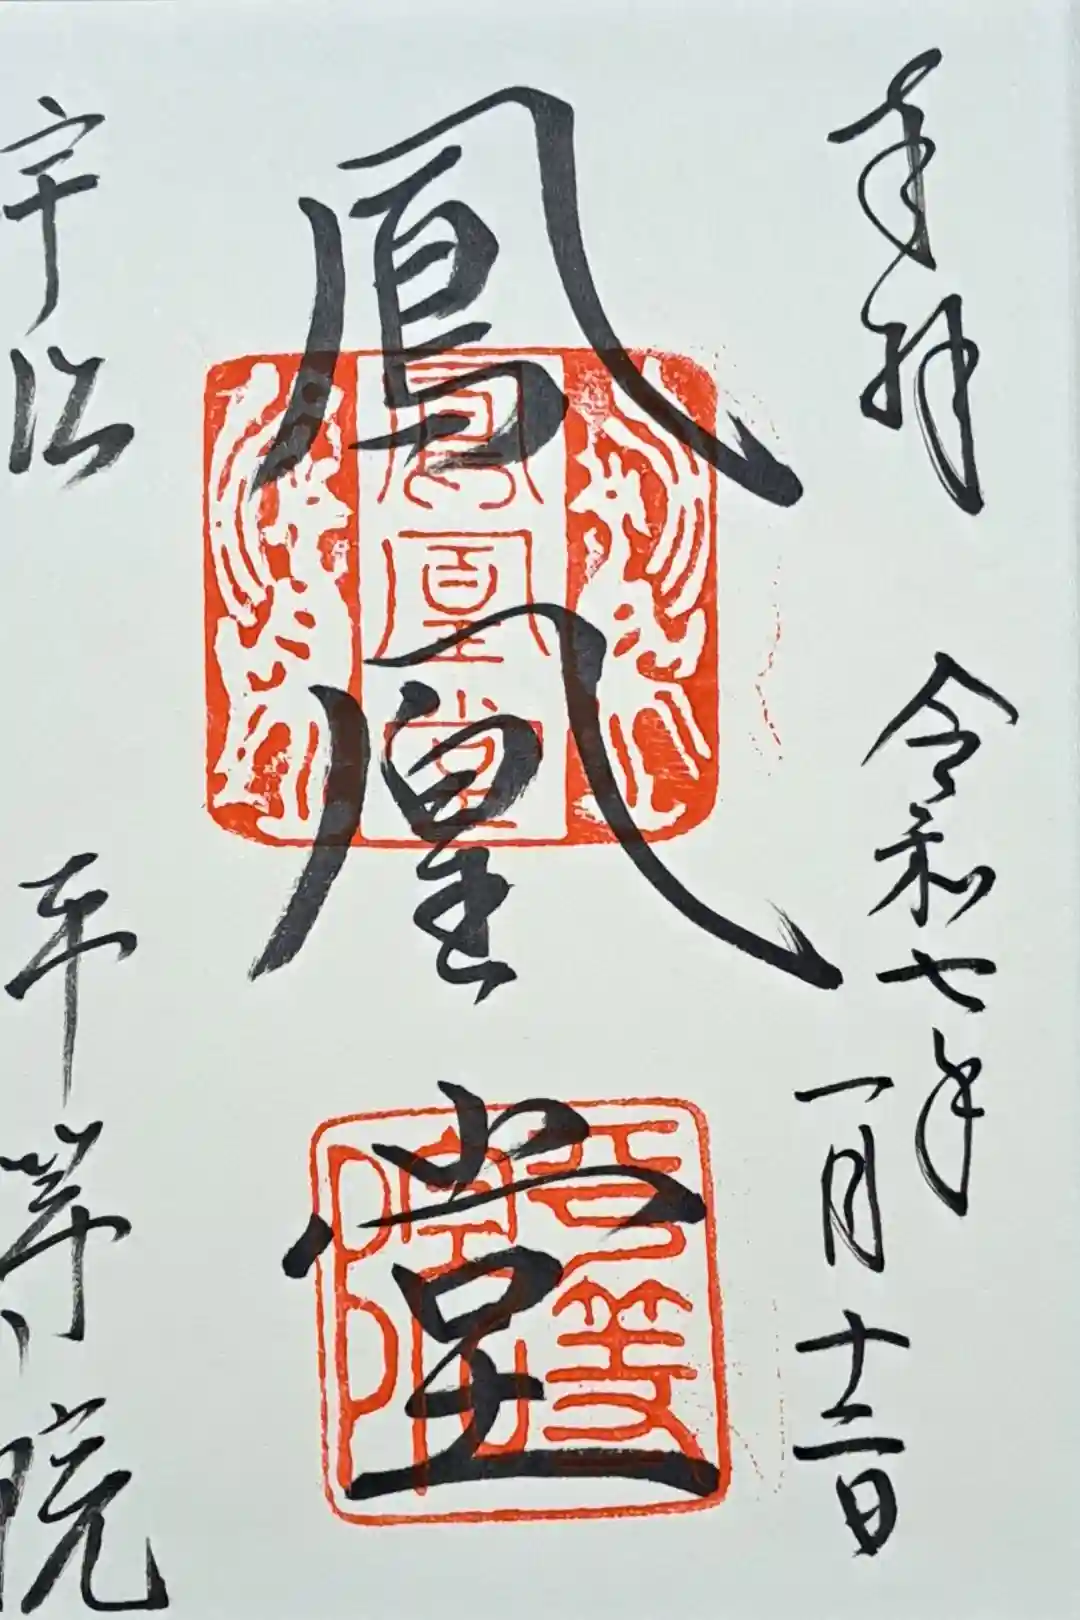 奉拝
令和七年
一月十二日
鳳凰堂
鳳凰堂
平等院
宇治 平等院